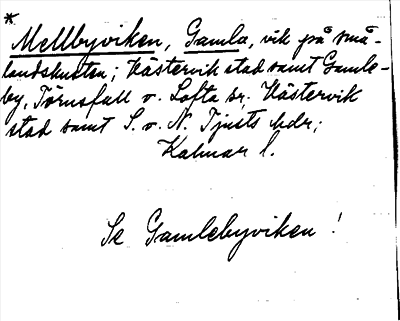 *
Mellbyviken, Gamla, vik på små-
landskusten; Västervik stad samt Gamle-
by, Törnsfall o. Lofta sr. Västervik
stad samt S. o. N. Tjusts hdr;
Kalmar l.
Se Gamlebyviken!